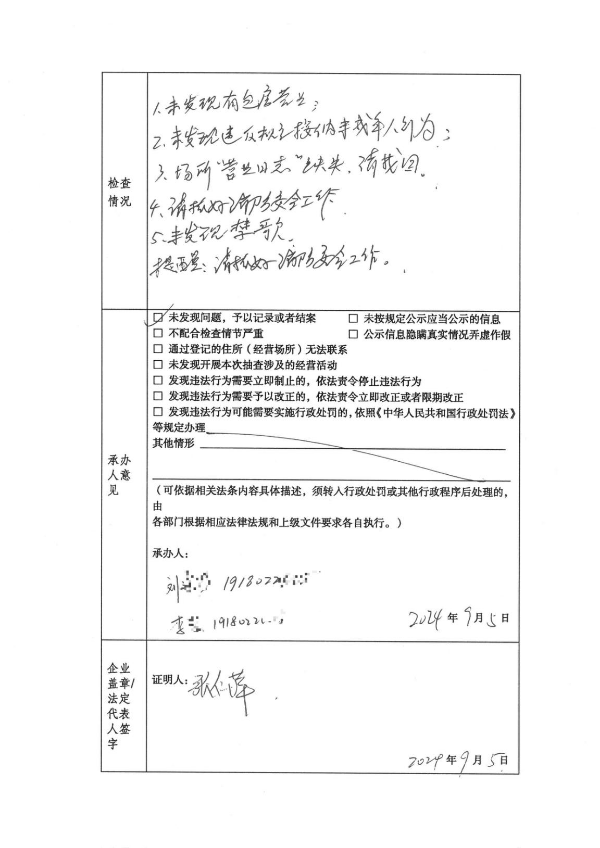 检查
情况
1.未发现有包房营业;
2.未发现违反规定接纳未成年人行为;
3.场所"营业日志"缺失,请找回。
4.请抓好消防安全工作
5.未发现禁歌
提醒:请抓好消防安全工作。
承办
人意
见
☐ 未发现问题,予以记录或者结案 ☐ 未按规定公示应当公示的信息
☐ 不配合检查情节严重 ☐ 公示信息隐瞒真实情况弄虚作假
☐ 通过登记的住所(经营场所)无法联系
☐ 未发现开展本次抽查涉及的经营活动
☐ 发现违法行为需要立即制止的,依法责令停止违法行为
☐ 发现违法行为需要予以改正的,依法责令立即改正或者限期改正
☐ 发现违法行为可能需要实施行政处罚的,依照《中华人民共和国行政处罚法》
等规定办理
其他情形
(可依据相关法条内容具体描述,须转入行政处罚或其他行政程序后处理的,
由
各部门根据相应法律法规和上级文件要求各自执行。)
承办人:
刘 1918022
李 1918022
2024年9月5日
企业
盖章/
法定
代表
人签
字
证明人:张仁萍
2024年9月5日